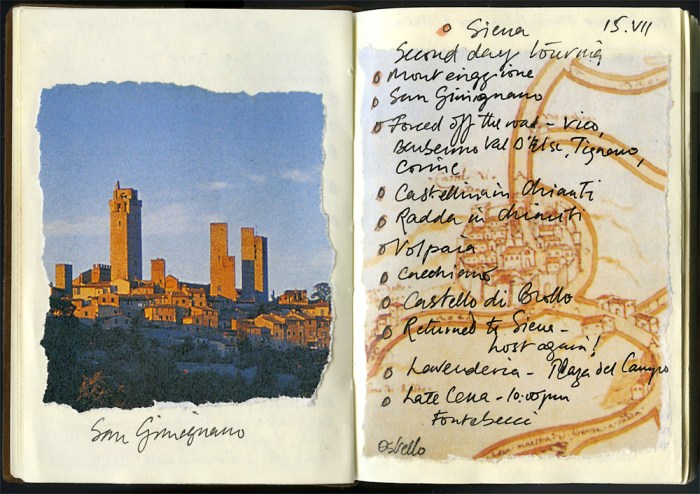 San Gimignano
Siena 15.VII
Second day touring
Monteriggione
San Gimignano
Forced off the road - Vico,
Barberino Val D'Elsa, Tignano,
Castellina in Chianti
Radda in Chianti
Volpaia
Cacchiano
Castello di Brolio
Returned to Siena -
Lost again!
Lavenderia - Plaza del Campo
Late Cena - 10:00pm
Fontebecci
Ostello